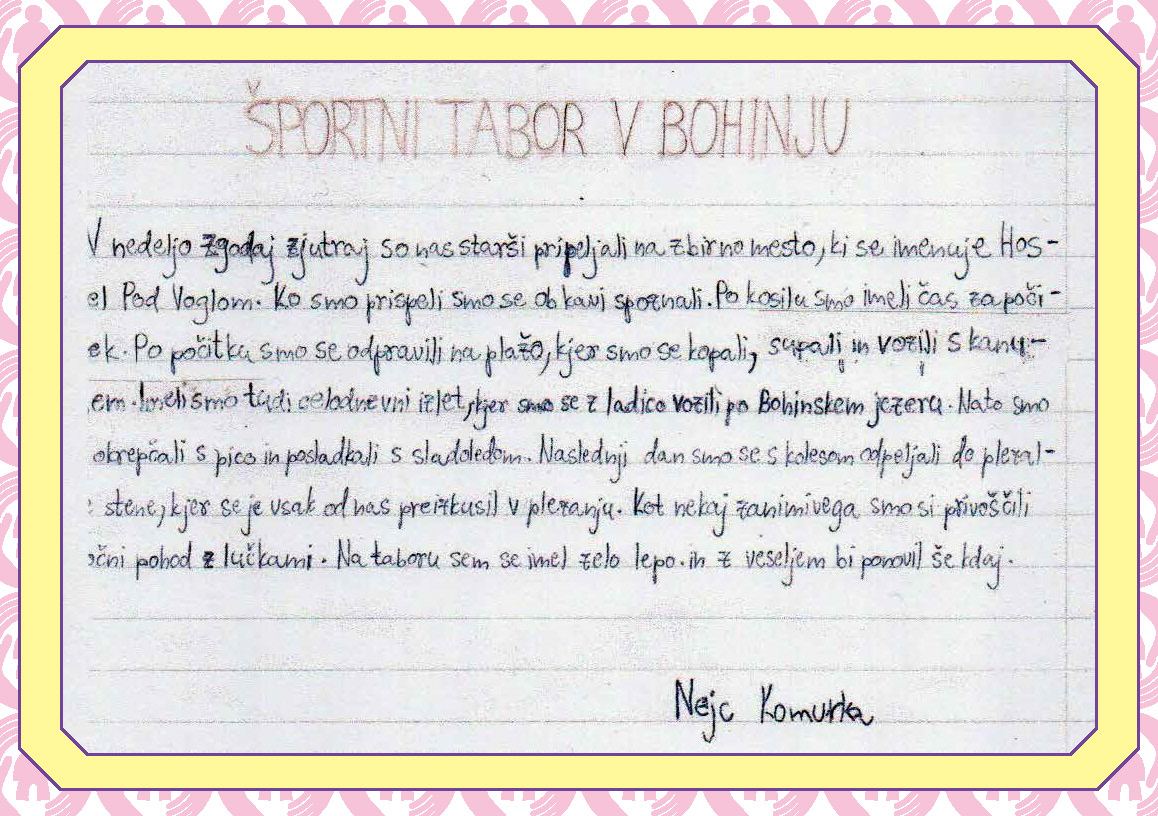 ŠPORTNI TABOR V BOHINJU
V nedeljo zgodaj zjutraj so nas starši pripeljali na zbirno mesto, ki se imenuje Hos-
el Pod Voglom. Ko smo prispeli smo se ob kavi spoznali. Po kosilu smo imeli čas za poči-
ek. Po počitku smo se odpravili na plažo, kjer smo se kopali, supali in vozili s kanu-
em. Imeli smo tudi celodnevni izlet, kjer smo se z ladico vozili po Bohinskem jezeru. Nato smo
obrepčali s pico in posladkali s sladoledom. Naslednji dan smo se s kolesom odpeljali do plezal-
stene, kjer se je vsak od nas preizkusil v plezanju. Kot nekaj zanimivega smo si privoščili
očni pohod z lučkami. Na taboru sem se imel zelo lepo. in z veseljem bi ponovil še kdaj.
Nejc